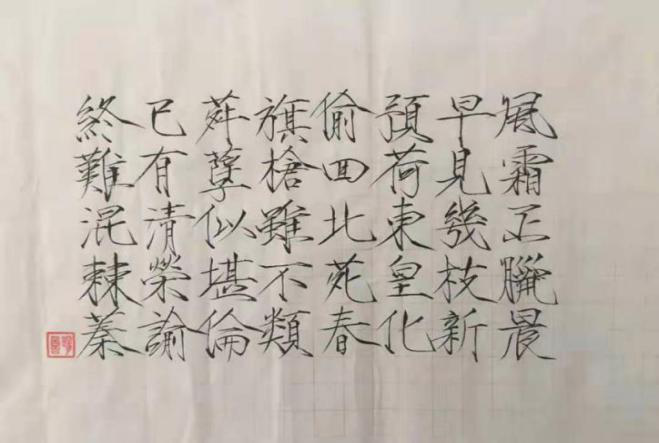 風霜正臘晨
早見幾枝新
預荷東皇化
偷回北苑春
旗槍雖不類
荈孽似堪倫
已有清榮諭
終難混棘蓁